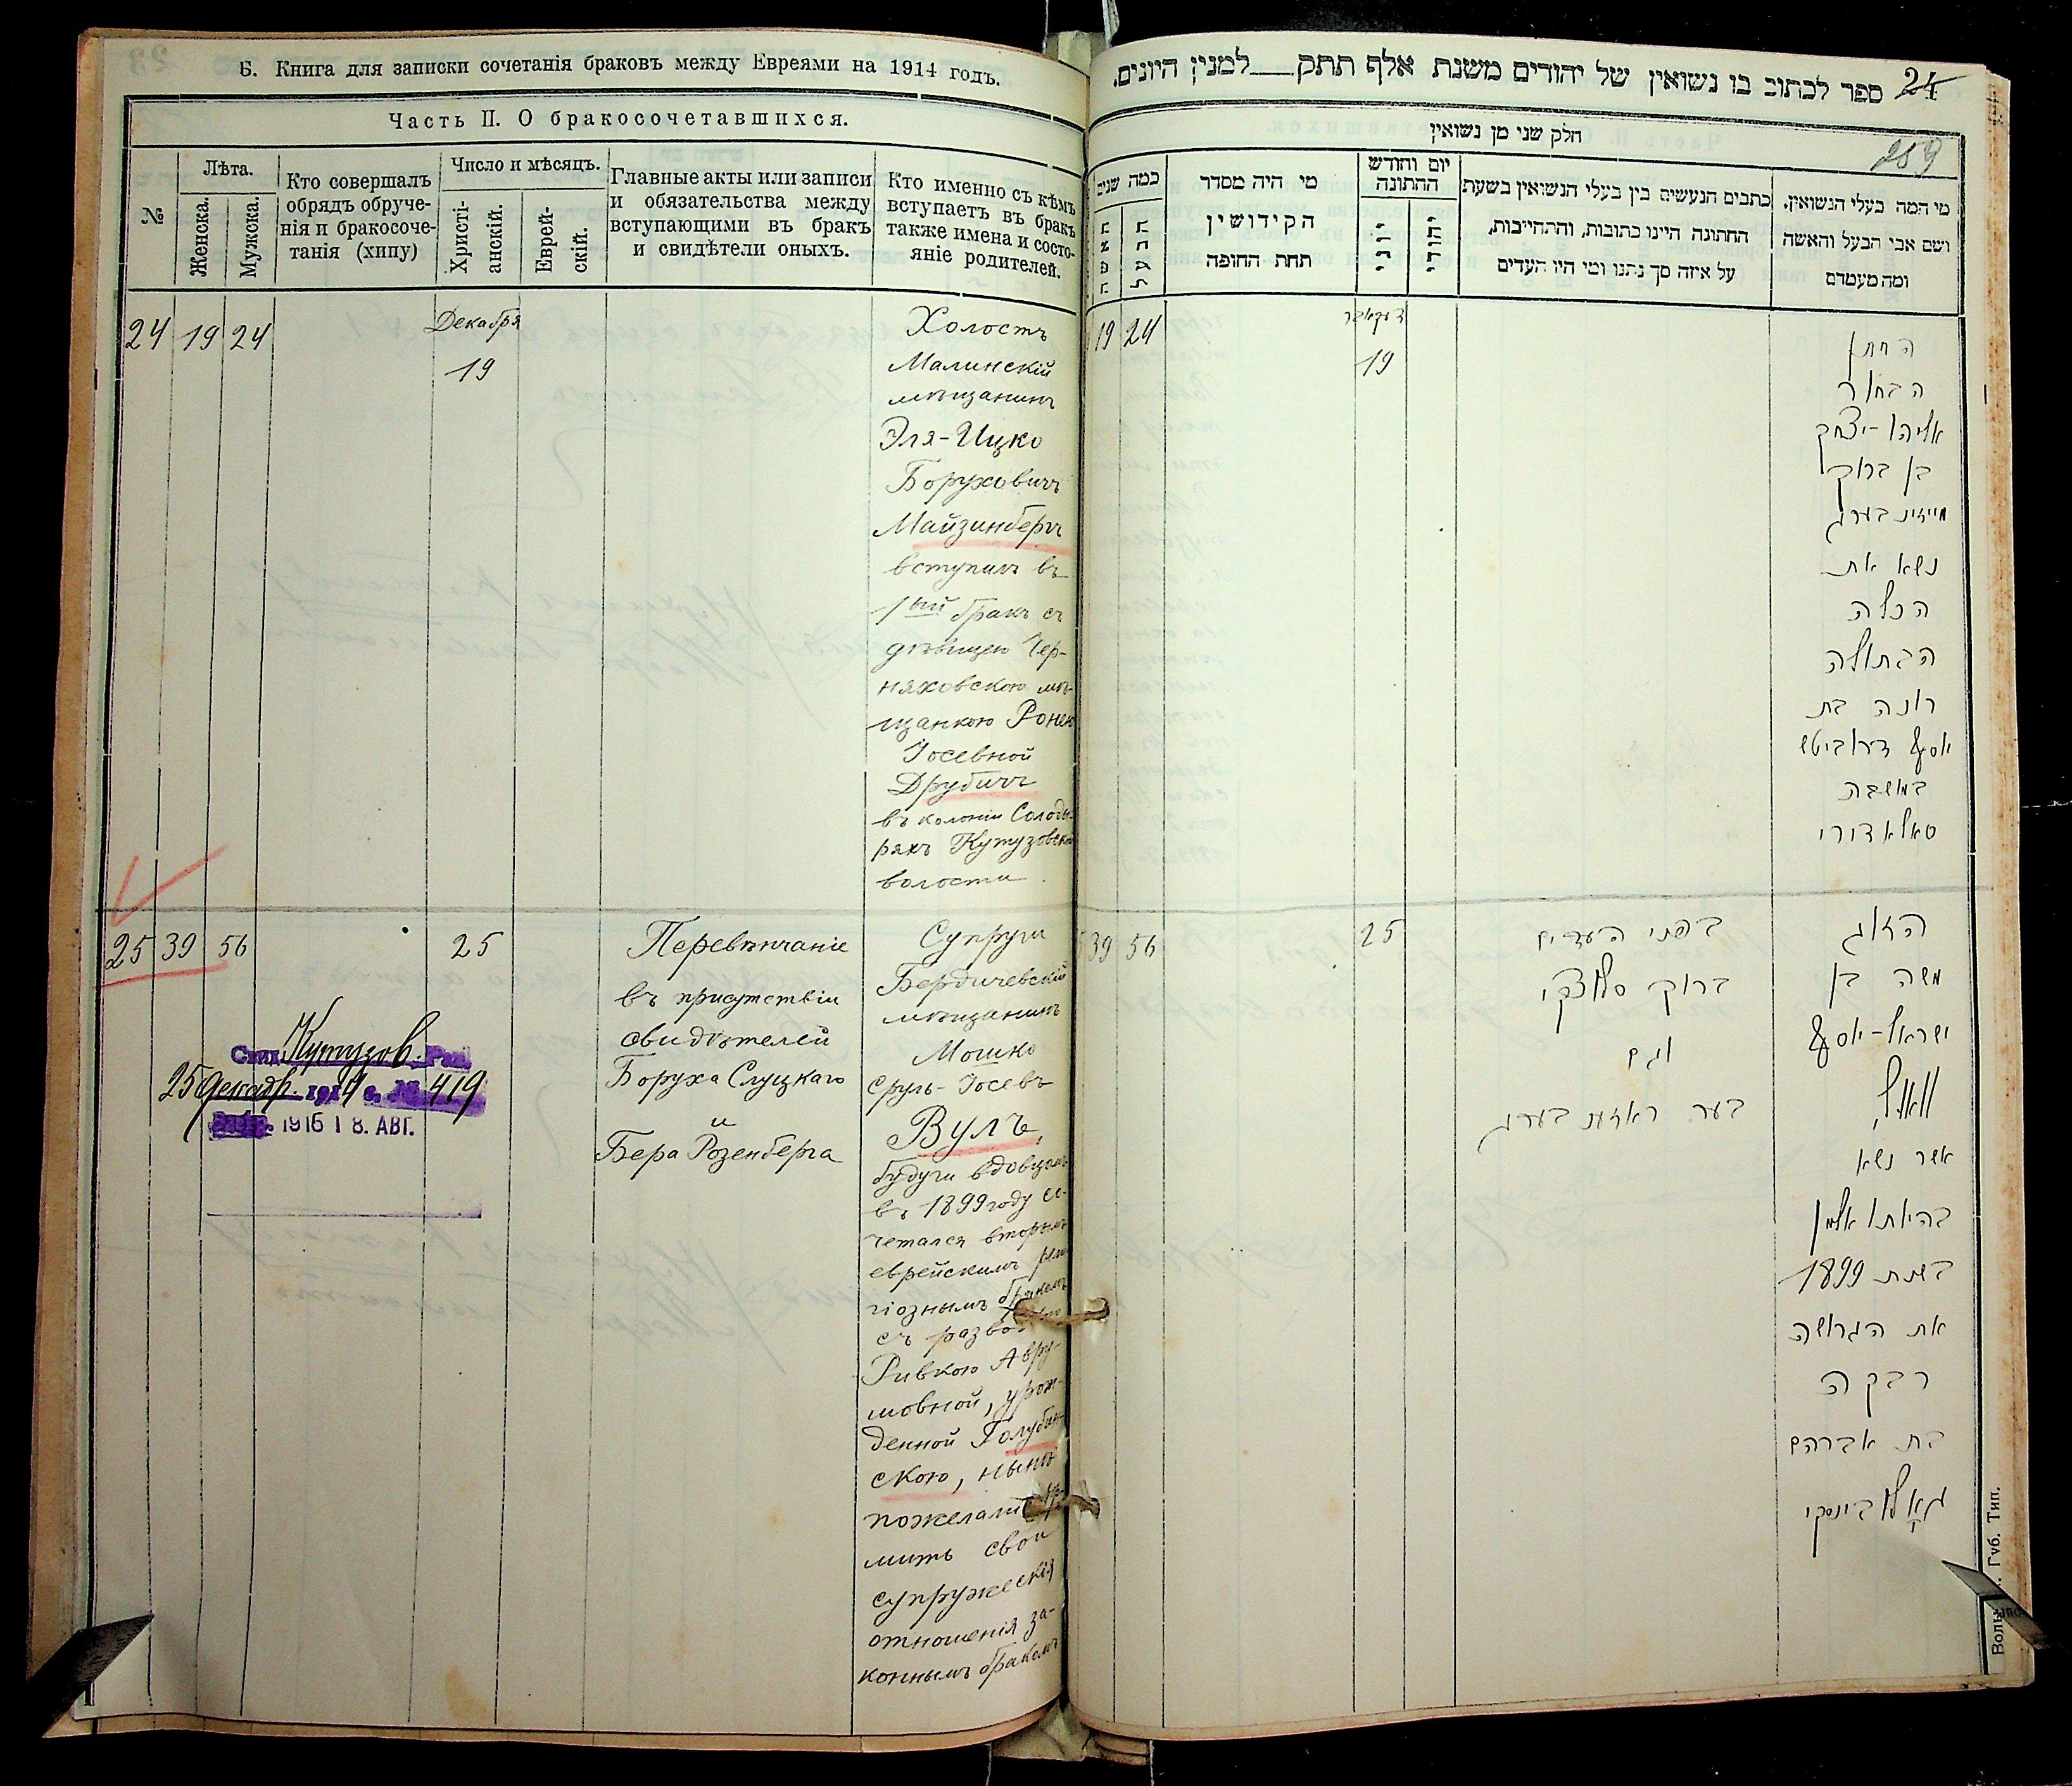 Б. Книга для записки сочетанія браковъ между Евреями на 1914 годъ.
Часть II. О бракосочетавшихся.
№
Лѣта.
Женска.
Мужска.
Кто совершалъ
обрядъ обруче-
нія и бракосоче-
танія (хипу)
Число и мѣсяцъ.
Христі-
анскій.
Еврей-
скій.
Главные акты или записи
и обязательства между
вступающими въ бракъ
и свидѣтели оныхъ.
Кто именно съ кѣмъ
вступаетъ въ бракъ
также имена и состо-
яніе родителей.
24 19 24
Декабря
19
Холостъ
Малинскій
мѣщанинъ
Эля-Ицко
Боруховичъ
Майзинбергъ
вступилъ въ
1ый бракъ съ
дѣвицею Чер-
няховскою мѣ-
щанкою Ронею
Іосевной
Друбичъ
въ колоніи Солоды-
ряхъ Кутузовской
волости
25 39 56
25
Кутузов. Рав
25 Декабр. 1914 г. № 419
1916 18. АВГ.
Перевѣнчаніе
въ присутствіи
свидѣтелей
Боруха Слуцкаго
и
Бера Розенберга
Супруги
Бердичевскій
мѣщанинъ
Мошко
Сруль-Іосевъ
Вулъ,
будучи вдовцомъ
въ 1899 году со-
четался вторымъ
еврейскимъ рели-
гіознымъ бракомъ
съ
Ривкою Авру-
мовной, урож-
денной Голубин-
скою, нынѣ
пожелали
мить свои
супружескія
отношенія за-
коннымъ бракомъ
24
ספר לכתוב בו נשואין של יהודים משנת אלף תתק___למנין היונים.
חלק שני מן נשואין
259
כמה שנים
האשה
הבעל
מי היה מסדר
הקידושין
תחת החופה
יום וחודש
החתונה
יוני
יהודי
כתבים הנעשים בין בעלי הנשואין בשעת
החתונה היינו כתובות, והתחייבות,
על איזה סך נתנו ומי היו העדים
מי המה בעלי הנשואין.
ושם אבי הבעל והאשה
ומה מעמדם
19 24
דעקאבר
19
החתן
הבחור
אליהו-יצחק
בן ברוך
מייזינבערג
נשא את
הכלה
הבתולה
רונה בת
יוסף דרוביטש
במושבה
סאלאדורי
39 56
25
בפני העדים
ברוך סלוצקי
וגם
בער ראזענבערג
הזוג
משה בן
ישראל-יוסף
וואוּל,
אשר נשא
בהיותו אלמן
בשנת 1899
את הגרושה
רבקה
בת אברהם
גאָלובינסקי
Губ. Тип.